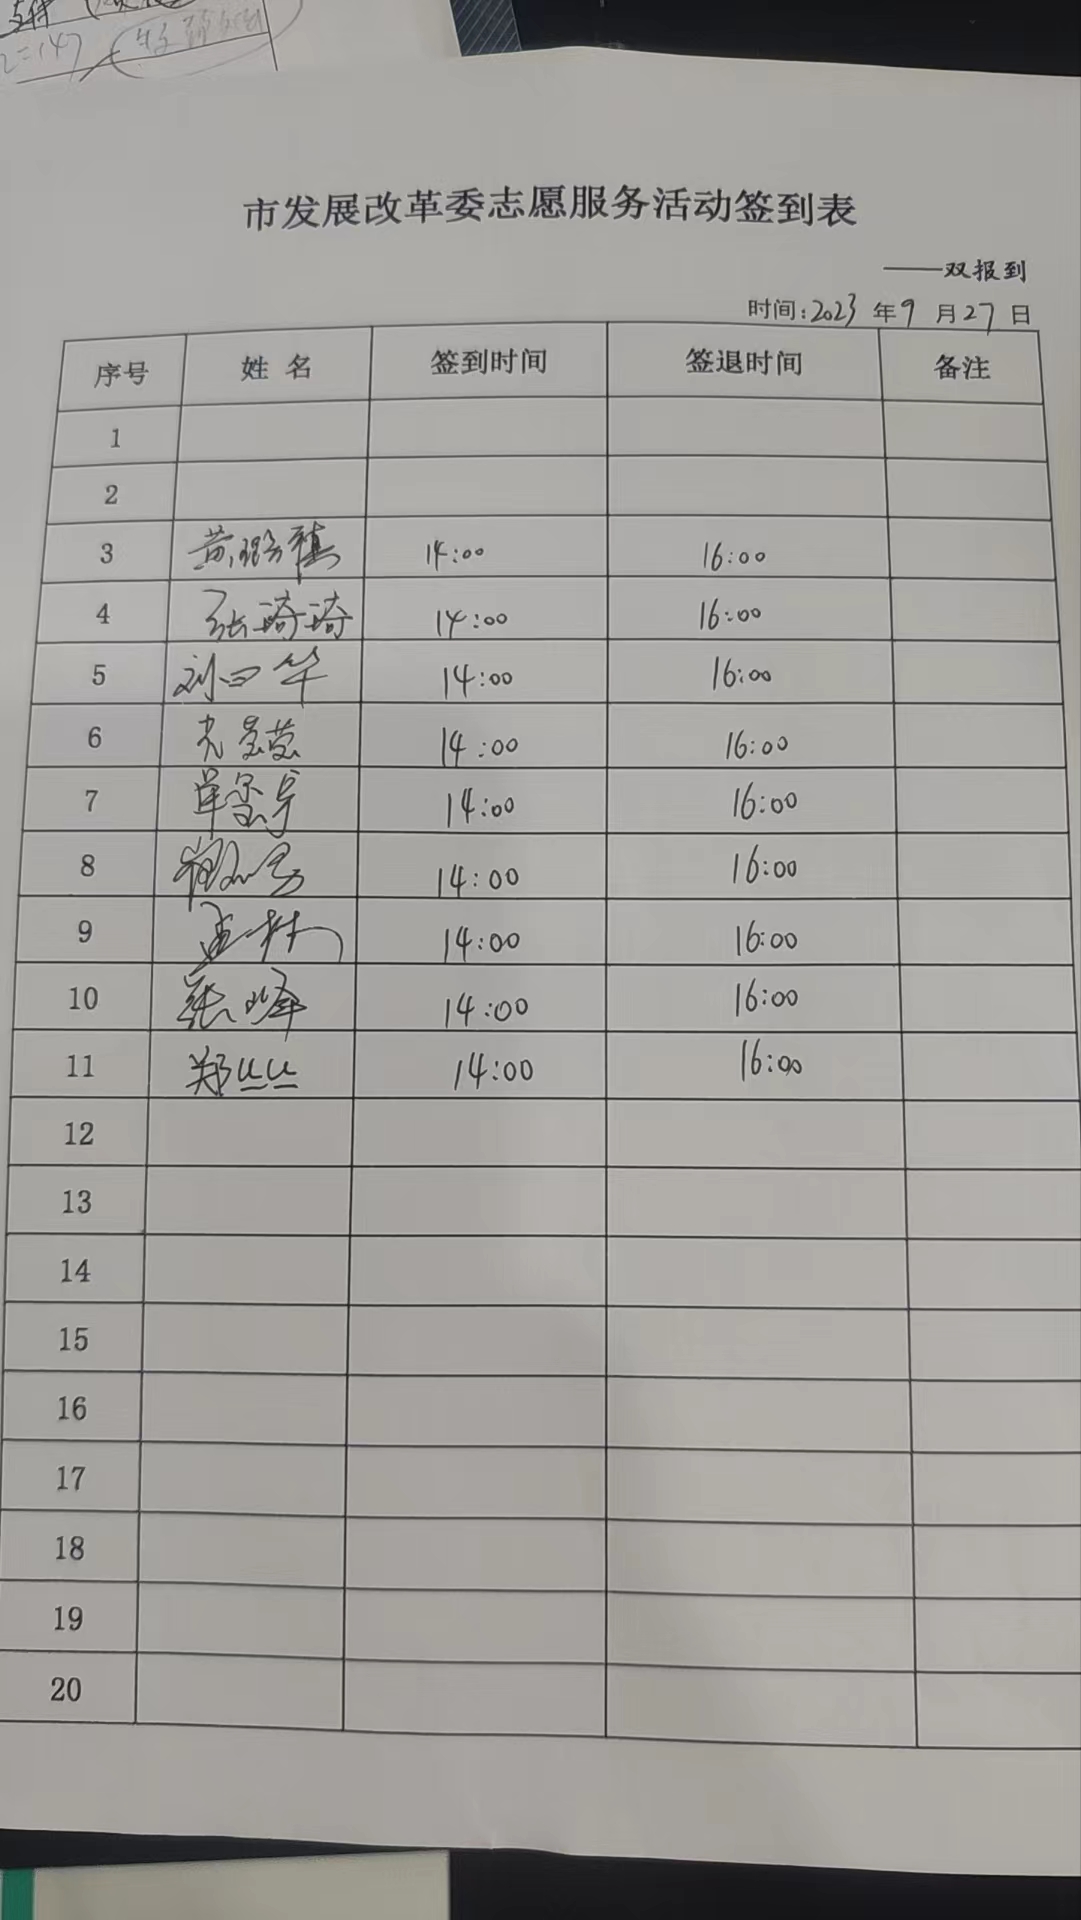 支付
2=147
市发展改革委志愿服务活动签到表
——双报到
时间:2023 年9 月27日
序号 姓 名 签到时间 签退时间 备注
1
2
3 黄璐禛 14:00 16:00
4 张琦琦 14:00 16:00
5 刘日华 14:00 16:00
6 14:00 16:00
7 单玺宇 14:00 16:00
8 14:00 16:00
9 孟林 14:00 16:00
10 张峰 14:00 16:00
11 郑丝丝 14:00 16:00
12
13
14
15
16
17
18
19
20